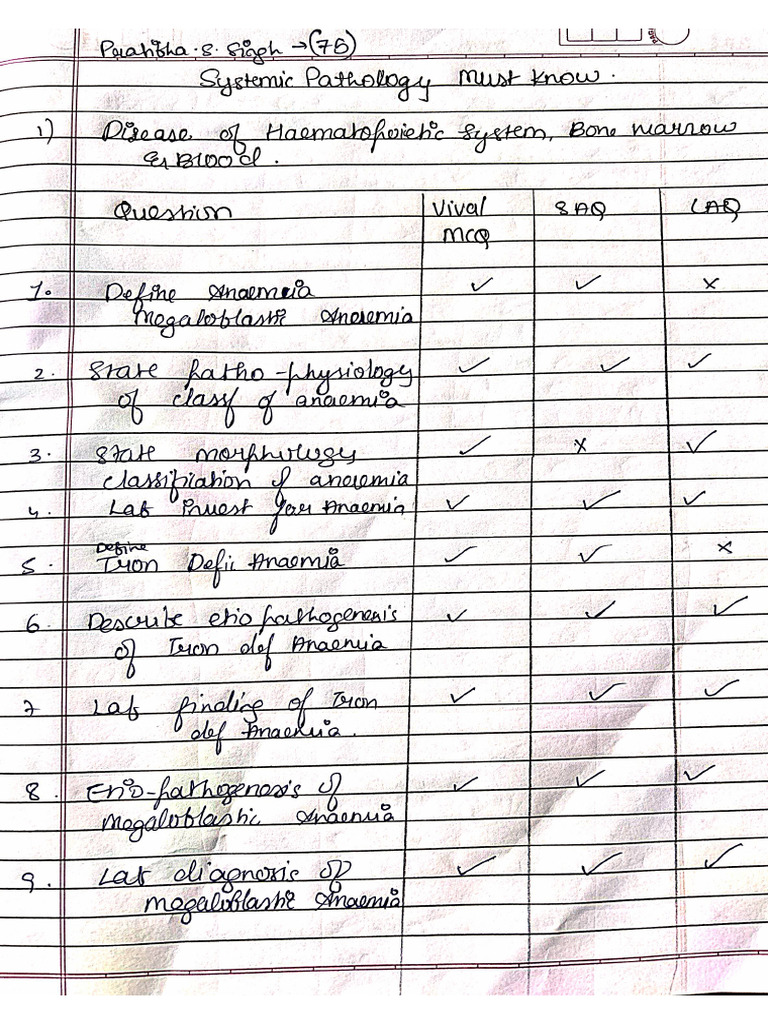 Pratibha.S.Singh → (76)
Systemic Pathology Must Know.
1) Disease of Haematopoietic System, Bone marrow
& Blood.
Question Viva/ SAQ LAQ
MCQ
1. Define Anaemia ✓ ✓ ×
Megaloblastic Anaemia
2. State patho-physiology ✓ ✓ ✓
of classf of anaemia
3. State morphology ✓ × ✓
classification of anaemia
4. Lab Invest for Anaemia ✓ ✓ ✓
Define
5. Iron Defi Anaemia ✓ ✓ ×
6. Describe etiopathogenesis ✓ ✓ ✓
of Iron def Anaemia
7 Lab finding of Iron ✓ ✓ ✓
def Anaemia.
8. Etio-pathogenesis of ✓ ✓ ✓
megaloblastic Anaemia
9. Lab diagnosis of ✓ ✓ ✓
megaloblastic Anaemia